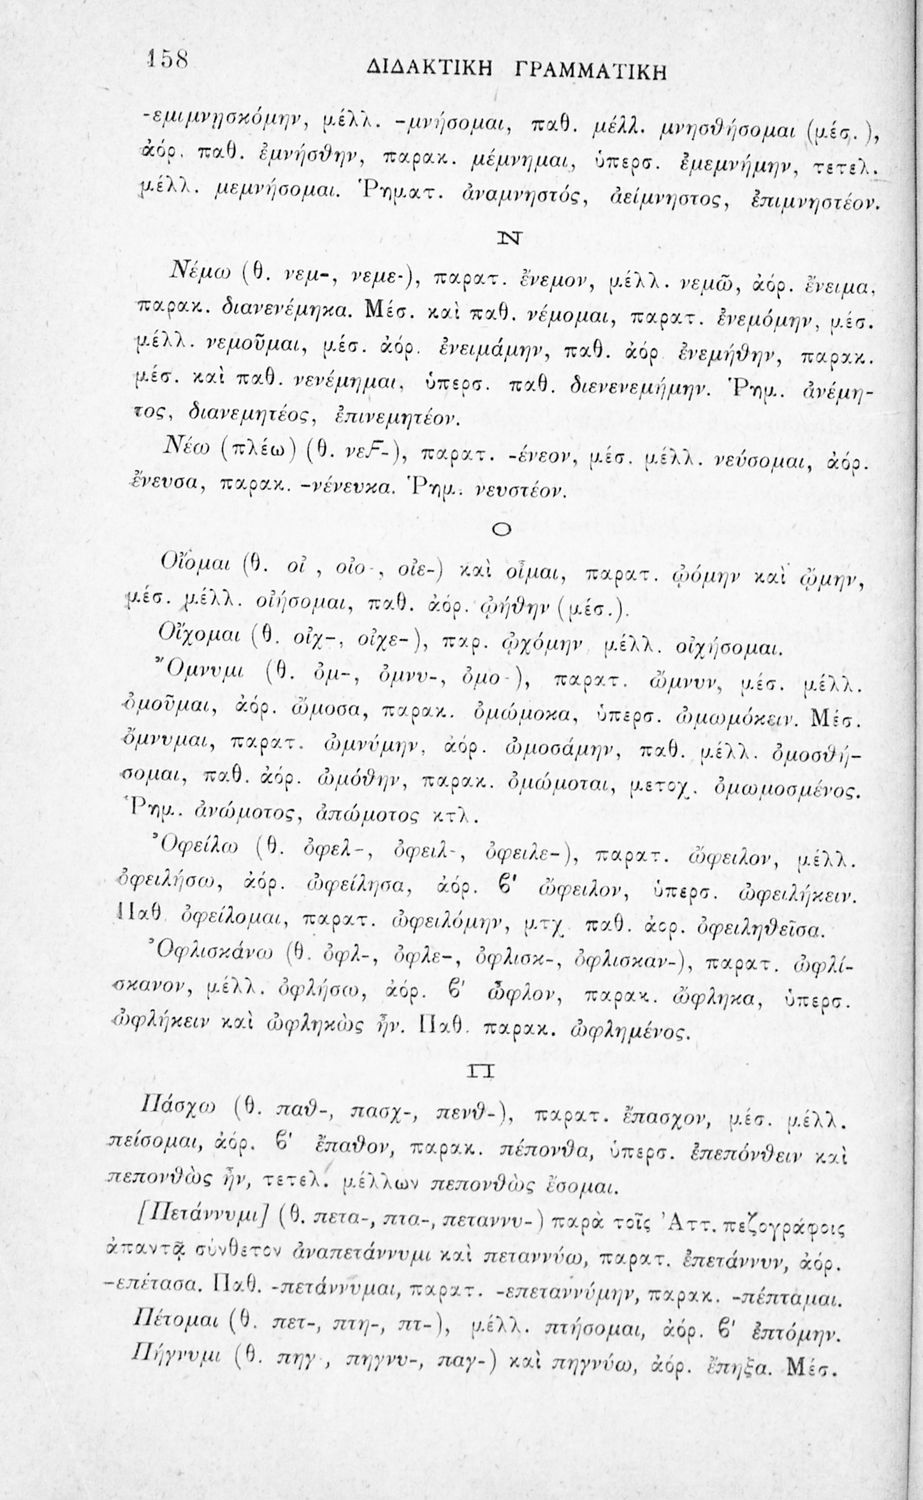 158
ΔΙΔΑΚΤΙΚΗ ΓΡΑΜΜΑΤΙΚΗ
-εμιμνῃσκόμην, μέλλ. -μνήσομαι, παθ. μέλλ. μνησθήσομαι (μέσ.),
ἀόρ. παθ. ἐμνήσθην, παρακ. μέμνημαι, ὑπερσ. ἐμεμνήμην, τετελ.
μέλλ. μεμνήσομαι. Ῥηματ. ἀναμνηστός, ἀείμνηστος, ἐπιμνηστέον.
Ν
Νέμω (θ. νεμ-, νεμε-), παρατ. ἔνεμον, μέλλ. νεμῶ, ἀόρ. ἔνειμα,
παρακ. διανενέμηκα. Μέσ. καὶ παθ. νέμομαι, παρατ. ἐνεμόμην, μέσ.
μέλλ. νεμοῦμαι, μέσ. ἀόρ. ἐνειμάμην, παθ. ἀόρ ἐνεμήθην, παρακ.
μέσ. καὶ παθ. νενέμημαι, ὑπερσ. παθ. διενενεμήμην. Ῥημ. ἀνέμη-
τος, διανεμητέος, ἐπινεμητέον.
Νέω (πλέω) (θ. νεϜ-), παρατ. -ένεον, μέσ. μέλλ. νεύσομαι, ἀόρ.
ἔνευσα, παρακ. -νένευκα. Ῥημ. νευστέον.
Ο
Οἴομαι (θ. οἰ , οἰο-, οἰε-) καὶ οἶμαι, παρατ. ᾠόμην καὶ ᾤμην,
μέσ. μέλλ. οἰήσομαι, παθ. ἀόρ. ᾠήθην (μέσ.).
Οἴχομαι (θ. οἰχ-, οἰχε-), παρ. ᾠχόμην μέλλ. οἰχήσομαι.
Ὄμνυμι (θ. ὀμ-, ὀμνυ-, ὀμο-), παρατ. ὤμνυν, μέσ. μέλλ.
ὀμοῦμαι, ἀόρ. ὤμοσα, παρακ. ὀμώμοκα, ὑπερσ. ὠμωμόκειν. Μέσ.
ὄμνυμαι, παρατ. ὠμνύμην, ἀόρ. ὠμοσάμην, παθ. μέλλ. ὀμοσθή-
σομαι, παθ. ἀόρ. ὠμόθην, παρακ. ὀμώμοται, μετοχ. ὀμωμοσμένος.
Ῥημ. ἀνώμοτος, ἀπώμοτος κτλ.
Ὀφείλω (θ. ὀφελ-, ὀφειλ-, ὀφειλε-), παρατ. ὤφειλον, μέλλ.
ὀφειλήσω, ἀόρ. ὠφείλησα, ἀόρ. ϐ' ὤφειλον, ὑπερσ. ὠφειλήκειν.
Παθ. ὀφείλομαι, παρατ. ὠφειλόμην, μτχ παθ. ἀορ. ὀφειληθεῖσα.
Ὀφλισκάνω (θ. ὀφλ-, ὀφλε-, ὀφλισκ-, ὀφλισκαν-), παρατ. ὠφλί-
σκανον, μέλλ. ὀφλήσω, ἀόρ. ϐ' ὦφλον, παρακ. ὤφληκα, ὑπερσ.
ὠφλήκειν καὶ ὠφληκὼς ἦν. Παθ. παρακ. ὠφλημένος.
Π
Πάσχω (θ. παθ-, πασχ-, πενθ-), παρατ. ἔπασχον, μέσ. μέλλ.
πείσομαι, ἀόρ. ϐ' ἔπαθον, παρακ. πέπονθα, ὑπερσ. ἐπεπόνθειν καὶ
πεπονθὼς ἦν, τετελ. μέλλων πεπονθὼς ἔσομαι.
[Πετάννυμι] (θ. πετα-, πτα-, πεταννυ-) παρὰ τοῖς Ἀττ. πεζογράφοις
ἀπαντᾷ σύνθετον ἀναπετάννυμι καὶ πεταννύω, παρατ. ἐπετάννυν, ἀόρ.
-επέτασα. Παθ. -πετάννυμαι, παρατ. -επεταννύμην, παρακ. -πέπταμαι.
Πέτομαι (θ. πετ-, πτη-, πτ-), μέλλ. πτήσομαι, ἀόρ. ϐ' ἐπτόμην.
Πήγνυμι (θ. πηγ , πηγνυ-, παγ-) καὶ πηγνύω, ἀόρ. ἔπηξα. Μέσ.